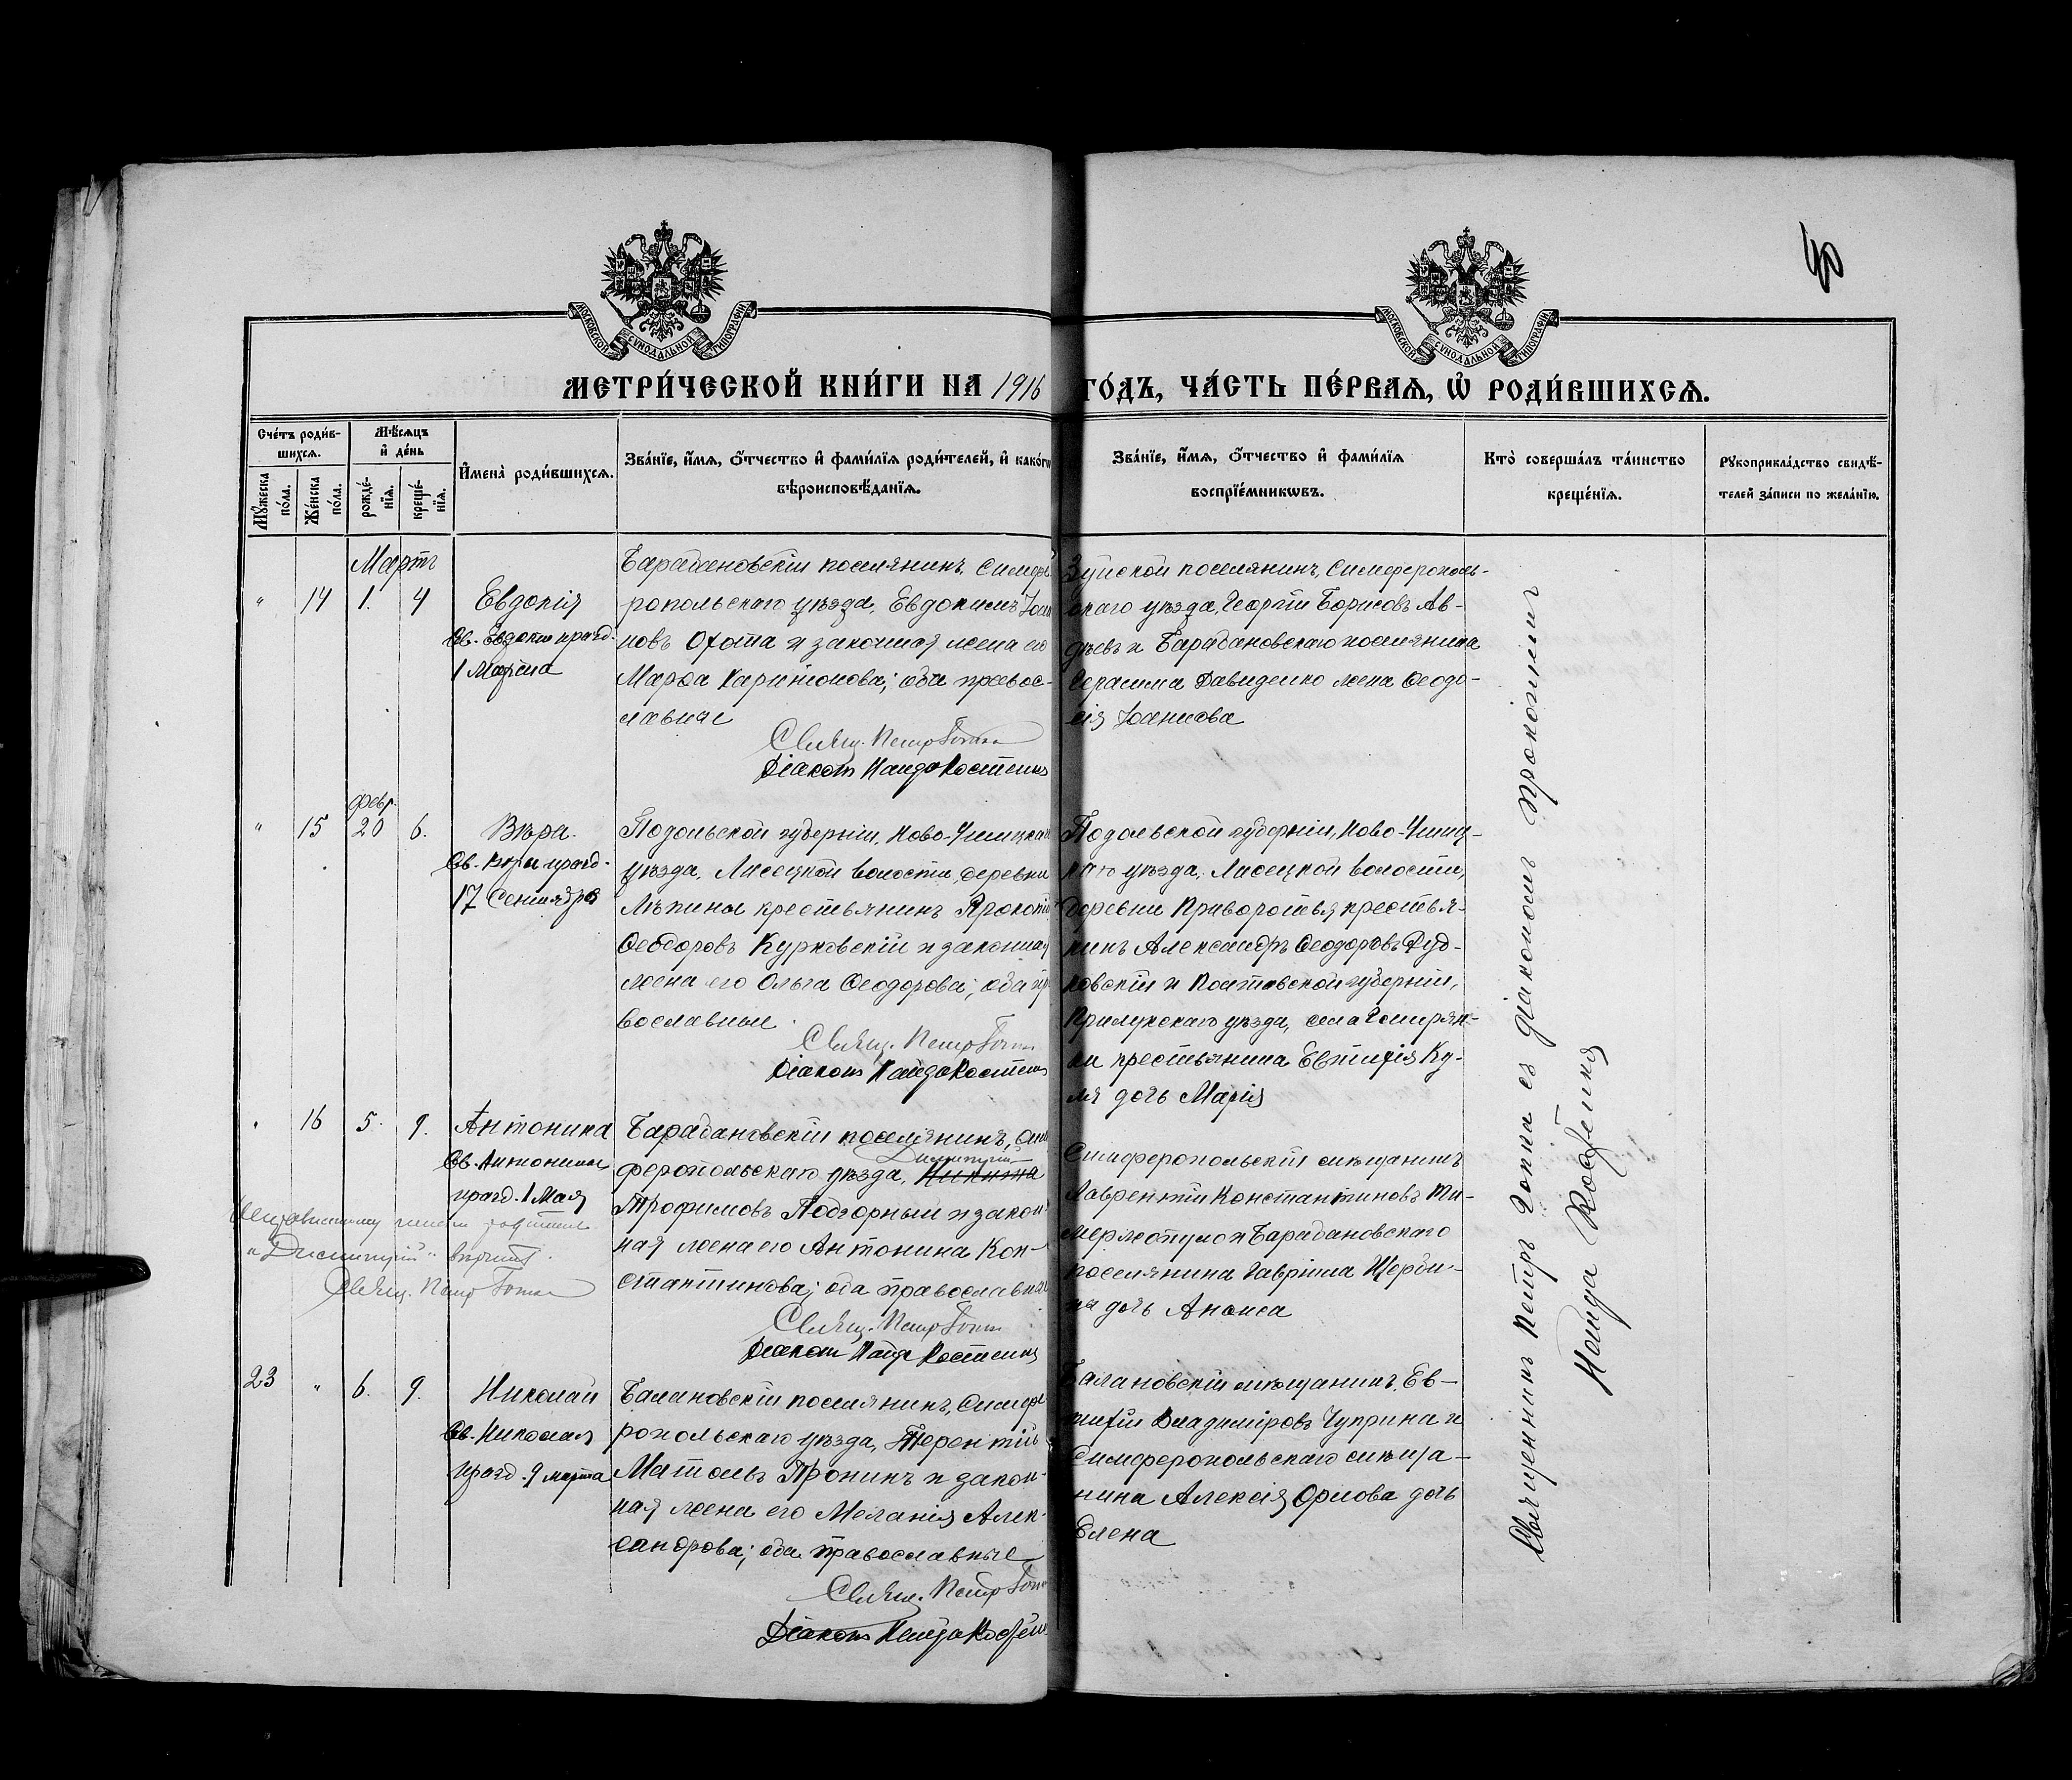 40
МОСКОВСКОЙ СУНОДАЛЬНОЙ ТИПОГРАФІИ
МОСКОВСКОЙ СУНОДАЛЬНОЙ ТИПОГРАФІИ
МЕТРИ́ЧЕСКОЙ КНИ́ГИ НА 1916
ГО́ДЪ, ЧА́СТЬ ПЕ́РВАѦ, Ѽ РОДИ́ВШИХСѦ.
Сче́тъ роди́в-
шихсѧ.
Мѹжеска по́ла.
Же́нска по́ла.
Мѣ́сѧцъ
и҆ де́нь
рожде́-
нїѧ.
креще́-
нїѧ.
И҆мена̀ роди́вшихсѧ.
Зва́нїе, и҆́мѧ, ѻ҆́тчество и҆ фами́лїѧ роди́телей, и҆ како́гѡ
вѣроисповѣ́данїѧ.
Зва́нїе, и҆́мѧ, ѻ҆́тчество и҆ фами́лїѧ
воспрїе́мникѡвъ.
Кто̀ соверша́лъ та́инство
креще́нїѧ.
Рꙋкоприкла́дство свидѣ́-
телей за́писи по жела́нїю.
Мартъ
" 14 1. 4
Евдокія
Св. Евдокіи празд.
1 Марта
Барабановскій поселянинъ, Симфе-
ропольскаго уѣзда, Евдокимъ Іоан
новъ Охота и законная жена его
Марѳа Харитонова; оба правос-
лавные
Свящ. Петр Гопка
Діаконъ Найда Костенко
Зуйской поселянинъ, Симферополь-
скаго уѣзда, Георгій Борисовъ Ав-
дѣевъ и Барабановскаго поселянина
Герасима Давиденко жена Ѳеодо-
сія Іоаннова
" 15 февр. 20 6.
Вѣра.
Св. Вѣры празд.
17 Сентября
Подольской губерніи, Ново-Ушицкаго
уѣзда, Лисецкой волости, деревни
крестьянинъ Прокопій
Ѳеодоровъ Курковскій и законная
жена его Ольга Ѳеодорова; оба пра
вославные
Свящ. Петр Гопка
Діаконъ Найда Костенко
Подольской губерніи, Ново-Ушиц-
каго уѣзда, Лисецкой волости,
деревни Праворотья крестья-
нинъ Александръ Ѳеодоровъ Дуд-
ковскій и Полтавской губерніи,
Прилукскаго уѣзда, села
крестьянина Евтихія Ку-
ля дочь Марія
" 16 5. 9.
Антонина
Св. Антонины
празд. 1 Мая
Барабановскій поселянинъ, Сим
Димитрій
феропольскаго уѣзда, Никита
Трофимовъ Подгорный и закон-
ная жена его Антонина Кон-
стантинова; оба православные
Свящ. Петр Гопка
Діаконъ Найда Костенко
имени родителя
"Димитрій" вѣрить.
Свящ. Петр Гопка
Симферопольскій мѣщанинъ
Лаврентій Константиновъ
и Барабановскаго
поселянина Гавріила Щерби-
на дочь Анѳиса
23 " 6. 9.
Николай
Св. Николая
празд. 9 марта
Балановскій поселянинъ, Симфе-
ропольскаго уѣзда, Терентій
Пронинъ и закон-
ная жена его Меланія Алек-
сандрова; оба православные
Свящ. Петр Гопка
Діаконъ Найда Костенко
Балановскій мѣщанинъ, Ев-
тихій Владиміровъ Чуприна и
Симферопольскаго мѣща-
нина Алексія Орлова дочь
Елена
Священникъ Петръ Гопка съ діакономъ Прокопіемъ
Найда Костенко